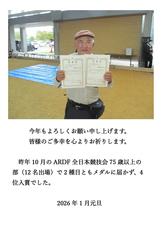 今年もよろしくお願い申し上げます。
皆様のご多幸を心よりお祈りします。
昨年10月のARDF全日本競技会75歳以上の
部（12名出場）で2種目ともメダルに届かず、4
位入賞でした。
2026年1月元旦